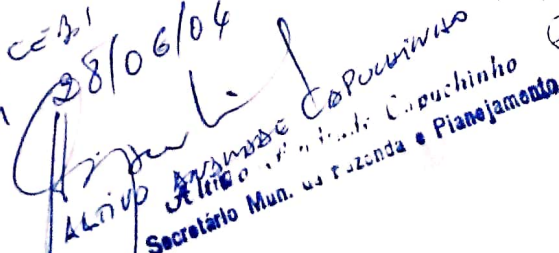 28/06/04
ALTIVO ANDRADE CAPUCHINHO
Altivo Capuchinho
Secretário Mun. da Fazenda e Planejamento